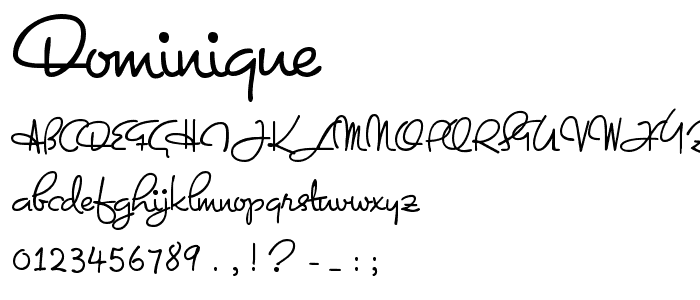 Dominique
ABCDEFGHIJKLMNOPQRSTUVWXYZ
abcdefghijklmnopqrstuvwxyz
0123456789 . , ! ? - _ : ;